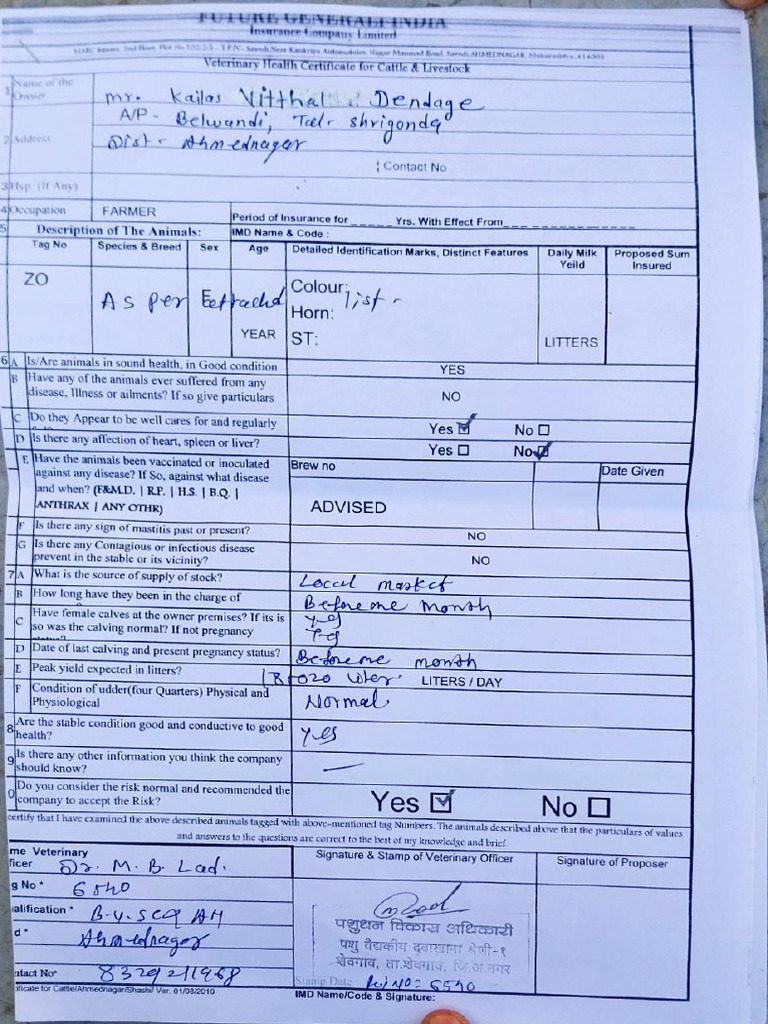 FUTURE GENERALI INDIA
Insurance Company Limited
Veterinary Health Certificate for Cattle & Livestock
1 Name of the Owner
mr. Kailas Vitthal Dendage
2 Address
A/P - Belwandi, Tal- Shrigonda
Dist- Ahmednagar
Contact No
3 Hyp. (If Any)
4 Occupation FARMER
Period of Insurance for _____ Yrs. With Effect From_______________
5 Description of The Animals: IMD Name & Code :
Tag No Species & Breed Sex Age Detailed Identification Marks, Distinct Features Daily Milk Yeild Proposed Sum Insured
ZO
As per list -
Colour:
Horn:
YEAR ST: LITTERS
6 A Is/Are animals in sound health, in Good condition YES
B Have any of the animals ever suffered from any disease, Illness or ailments? If so give particulars NO
C Do they Appear to be well cares for and regularly Yes ☑ No ☐
D Is there any affection of heart, spleen or liver? Yes ☐ No ☑
E Have the animals been vaccinated or inoculated against any disease? If So, against what disease and when? (F&M.D. | R.P. | H.S. | B.Q. | ANTHRAX | ANY OTHR)
Brew no Date Given
ADVISED
F Is there any sign of mastitis past or present? NO
G Is there any Contagious or infectious disease prevent in the stable or its vicinity? NO
7 A What is the source of supply of stock? Local market
B How long have they been in the charge of Before one month
C Have female calves at the owner premises? If its is so was the calving normal? If not pregnancy
yes
D Date of last calving and present pregnancy status? Before one month
E Peak yield expected in litters? 18 to 20 LITERS / DAY
F Condition of udder(four Quarters) Physical and Physiological Normal
8 Are the stable condition good and conductive to good health? yes
9 Is there any other information you think the company should know? —
0 Do you consider the risk normal and recommended the company to accept the Risk? Yes ☑ No ☐
certify that I have examined the above described animals tagged with above-mentioned tag Numbers. The animals described above that the particulars of values
and answers to the questions are correct to the best of my knowledge and brief.
me Veterinary
ficer Dr. M. B. Lad.
Signature & Stamp of Veterinary Officer
Signature of Proposer
g No *
alification * B.V.Sc & AH
d * Ahmednagar
पशुधन विकास अधिकारी
पशु वैद्यकीय दवाखाना श्रेणी-१
शेवगाव, ता.शेवगाव, जि.अ.नगर
ntact No*
Stamp Date
IMD Name/Code & Signature:
ificate for Cattle/Ahmednagar/Shashi/ Ver. 01/03/2010